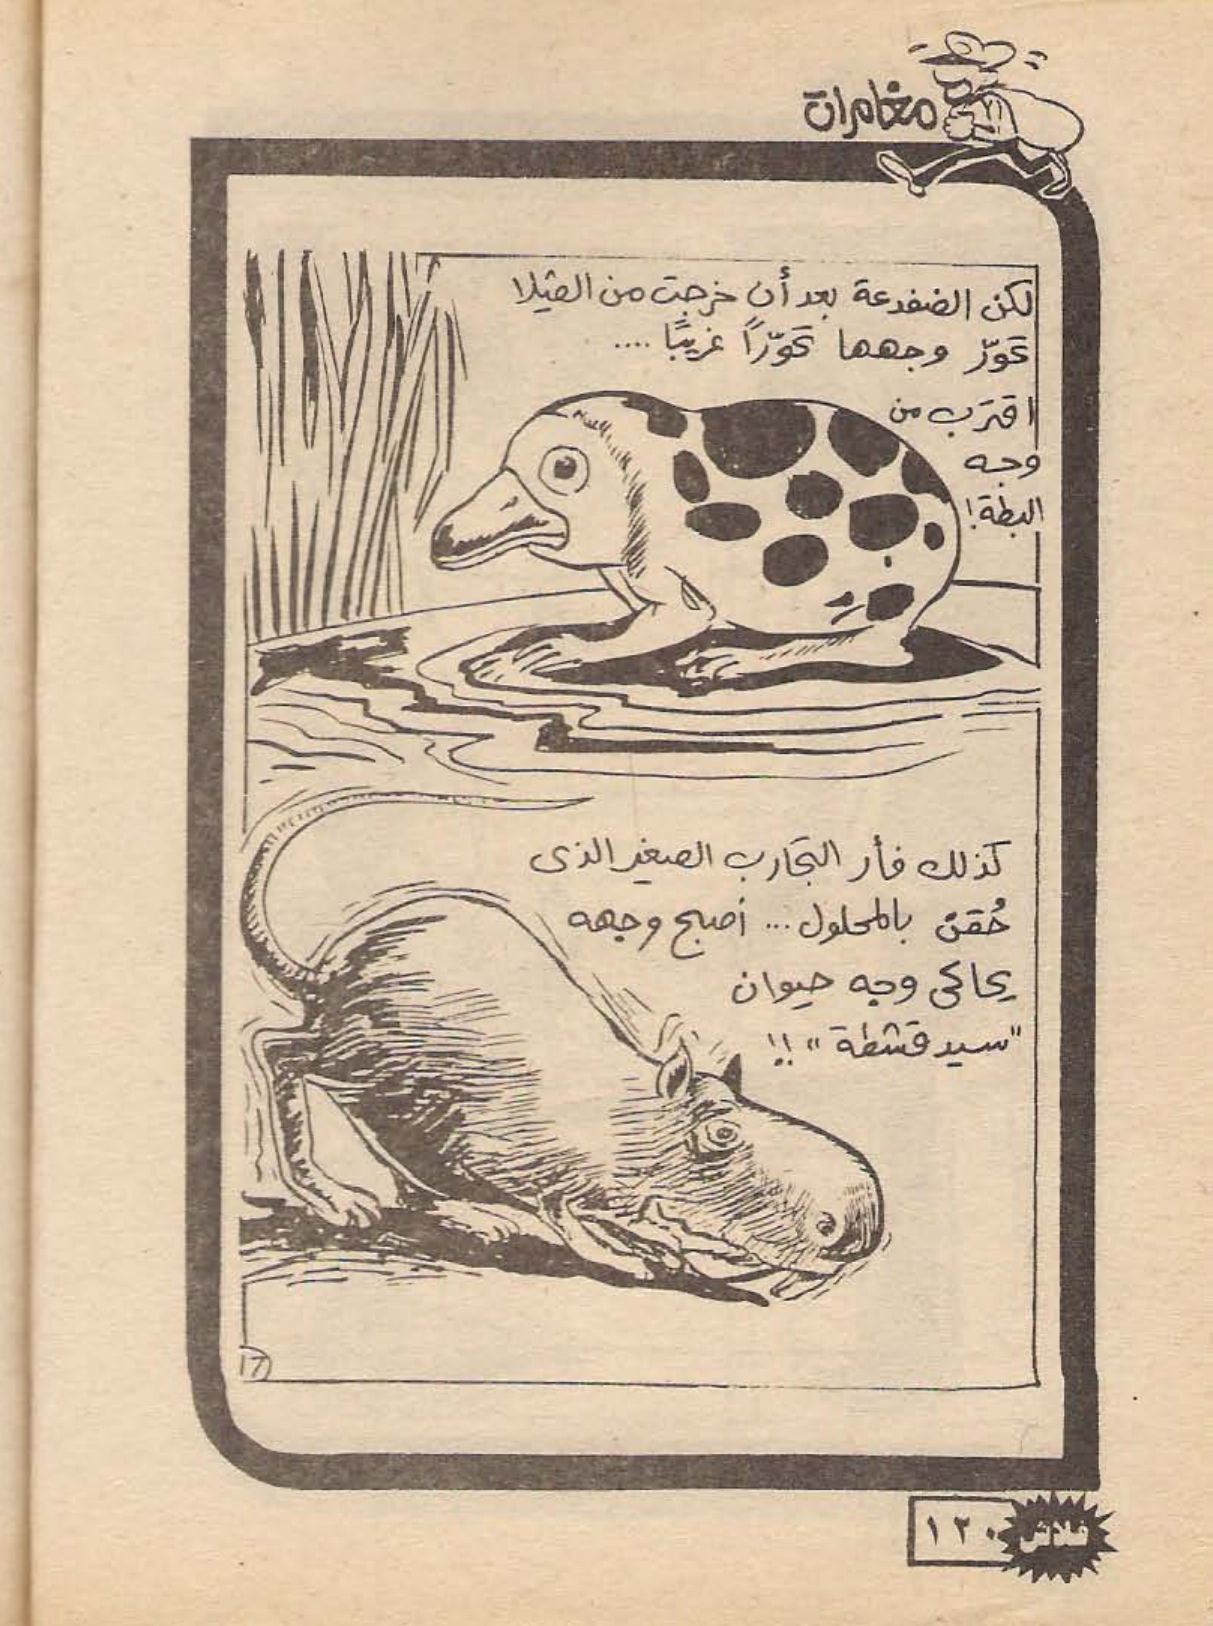 مغامرات
لكن الضفدعة بعد أن خرجت من الڤيلا
تحوّر وجهها تحوّرًا غريبًا ....
اقترب من
وجه
البطة!
كذلك فأر التجارب الصغير الذى
حُقن بالمحلول ... أصبح وجهه
يحاكى وجه حيوان
"سيد قشطة" !!
١٦
فلاش ١٢٠